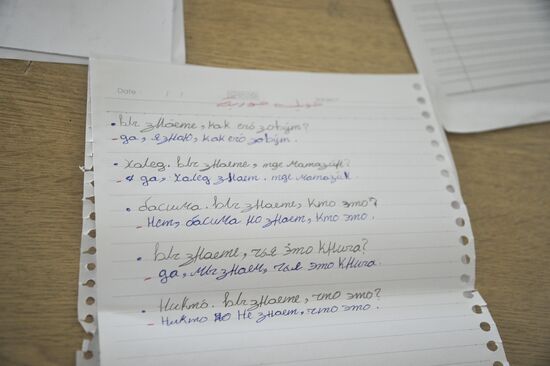 Date: / /
вы знаете, как его зовут?
да, я знаю, как его зовут.
Халед. вы знаете, где магазин?
я да, Халед знает. где магазин.
басима. вы знаете, кто это?
Нет, басима но знает, кто это.
вы знаете, чья это книга?
да, мы знаем, чья это книга.
Никто. вы знаете, что это?
Никто Не знает, что это.